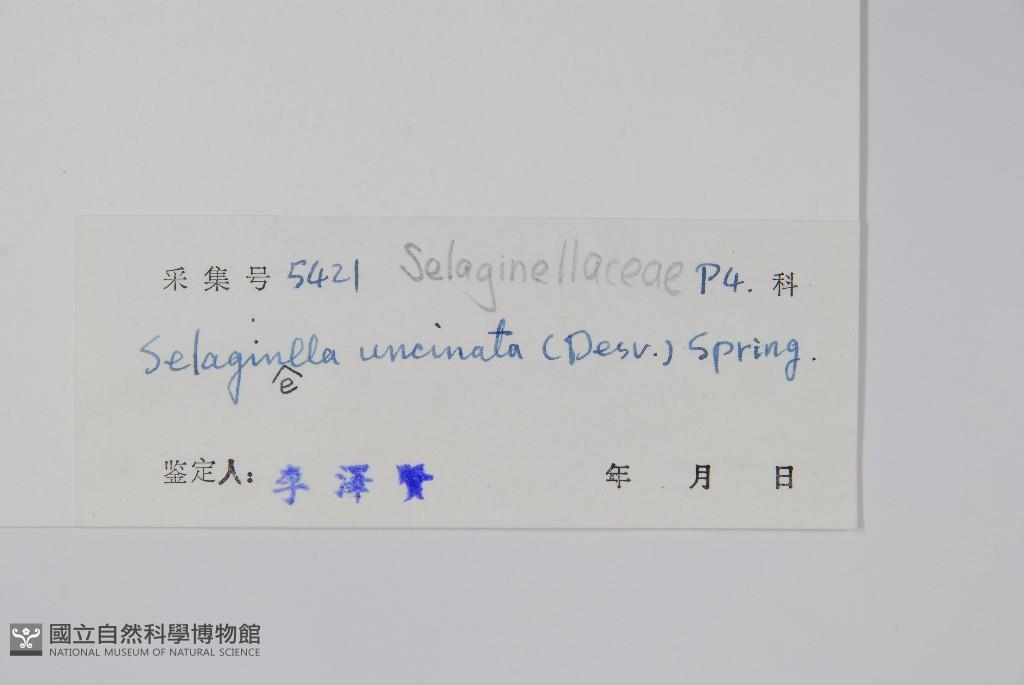 采集号 5421 Selaginellaceae P4. 科
Selaginella uncinata (Desv.) Spring.
鉴定人: 李澤賢 年 月 日
國立自然科學博物館
NATIONAL MUSEUM OF NATURAL SCIENCE